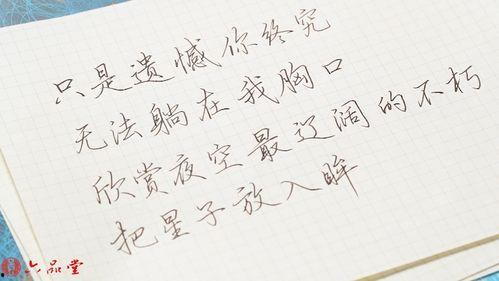 只是遗憾你终究
无法躺在我胸口
欣赏夜空最辽阔的不朽
把星子放入眸
六品堂